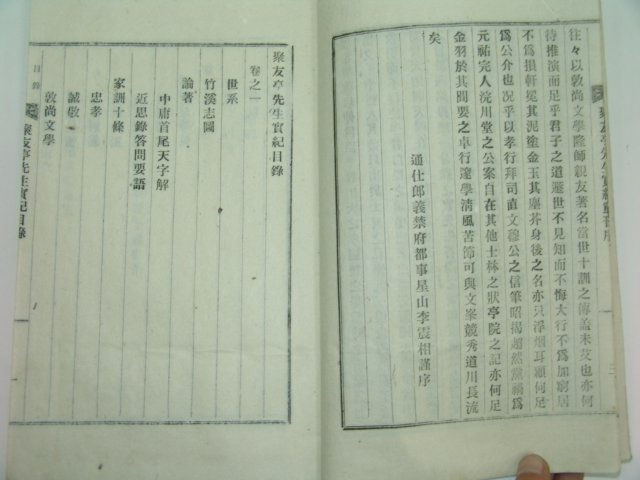 往々以敦尚文學隆師親友著名當世十訓之傳蓋未艾也亦何
待推演而足乎君子之道遯世不見知而不悔大行不爲加窮居
不爲損軒冕其泥塗金玉其塵芥身後之名亦只浮烟耳顧何足
爲公介也况乎以孝行拜司直文穆公之信筆昭揭超然黨禍爲
元祐完人浣川堂之公案自在其他士林之狀亭院之記亦何足
金羽於其間要之卓行邃學清風苦節可與文峯競秀道川長流
矣
通仕郎義禁府都事星山李震相謹序
聚友亭先生實紀目錄
卷之一
世系
竹溪志圖
論著
中庸首尾天字解
近思錄答問要語
家訓十條
忠孝
誠敬
敦尚文學
聚友亭先生實記目錄
目錄